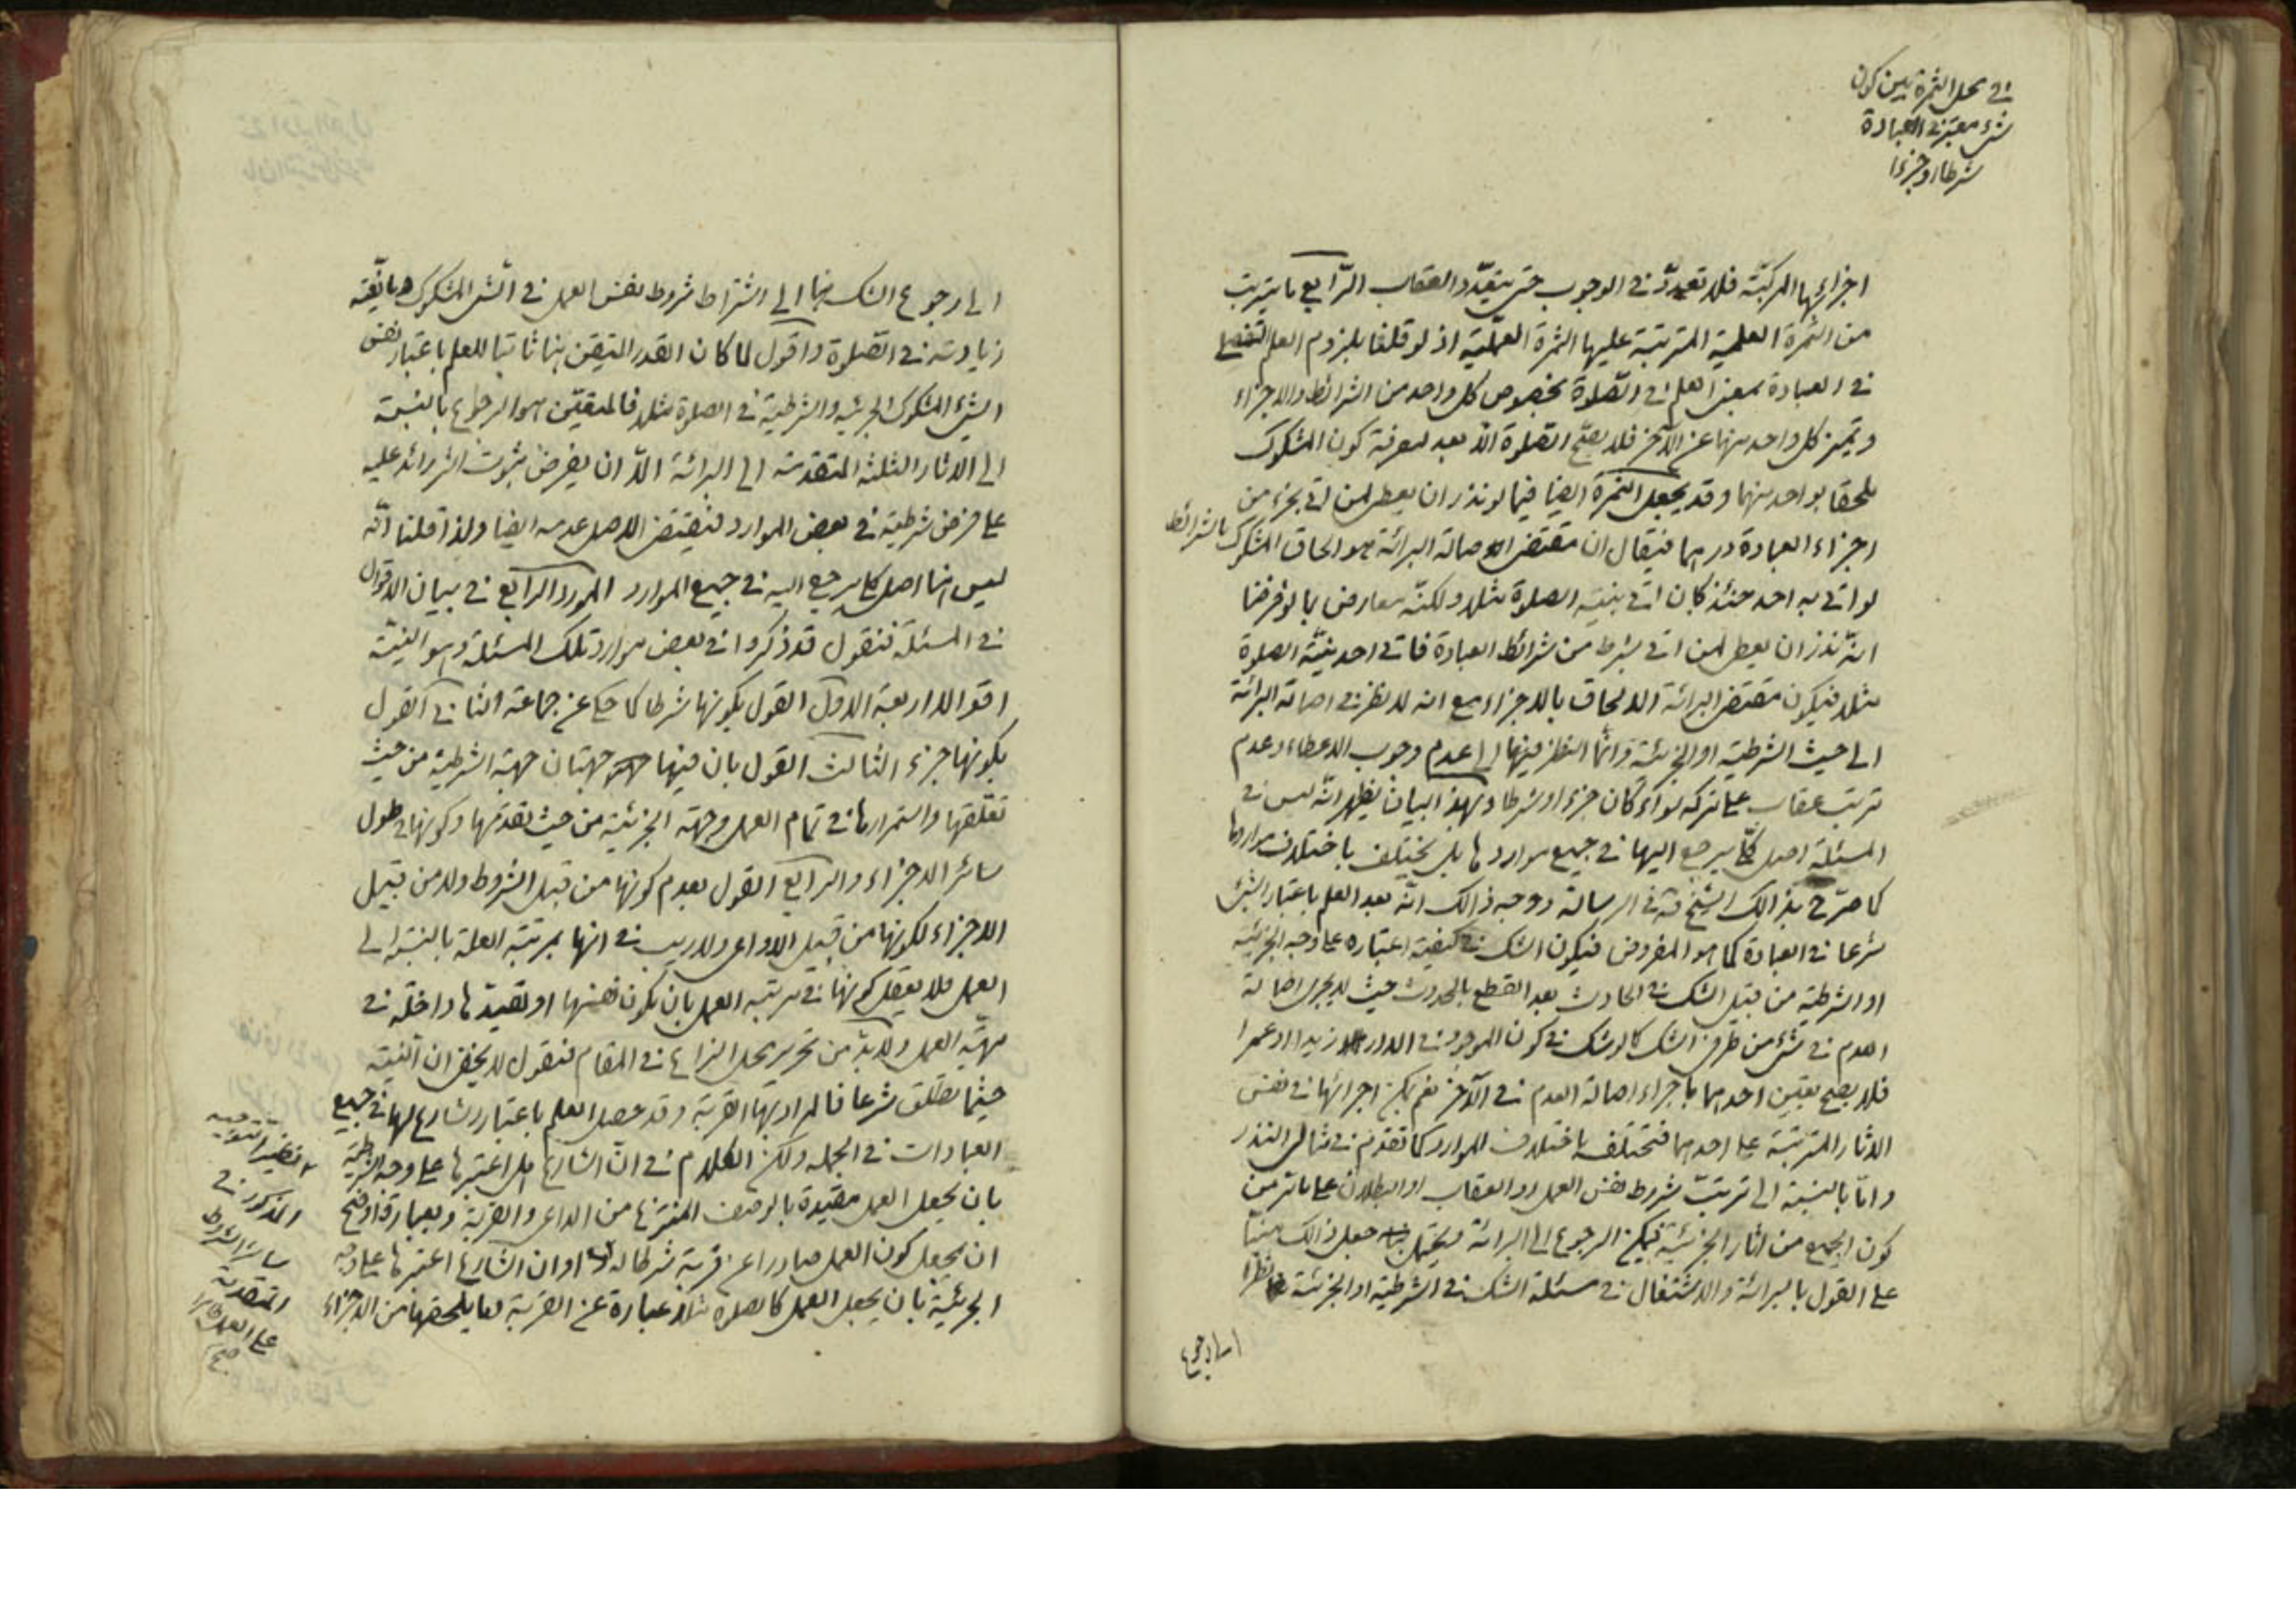 في محل الثمرة بين كون
شيء معتبر في العبادة
شرطا او جزءا
اجزائها المركبة فلا تعدد في الوجوب حتى يتعدد العقاب الرابع ما يترتب
من الثمرة العلمية المترتبة عليها الثمرة العملية اذ لو قلنا بلزوم العلم التفصيلي
في العبادة بمعنى العلم في الصلوة بخصوص كل واحد من الشرائط والاجزاء
وتميز كل واحد منها عن الآخر فلا يصح الصلوة الا بعد لمعرفة كون المشكوك
ملحقا بواحد منهما وقد يجعل الثمرة ايضا فيما لو نذر ان يعطى لمن اتى بجزء من
اجزاء العبادة درهما فيقال ان مقتضى اصالة البرائة هو الحاق المشكوك بالشرائط
لو اتى به احد حينئذ كان اتى بنية الصلوة مثلا ولكنه معارض بما لو فرضنا
انه نذر ان يعطى لمن اتى بشرط من شرائط العبادة فاتى احد بنية الصلوة
مثلا فيكون مقتضى البرائة الالحاق بالاجزاء مع انه لا نظر في اصالة البرائة
الى حيث الشرطية او الجزئية وانما النظر فيها الى عدم وجوب الاعطاء وعدم
ترتب عقاب على تركه سواء كان جزء او شرطا وبهذا البيان يظهر انه ليس في
المسئلة اصل كلي يرجع اليها في جميع مواردها بل يختلف باختلاف مواردها
كما صرح بذالك الشيخ في الرسالة ووجه ذالك انه بعد العلم باعتبار الشيء
شرعا في العبادة كما هو المفروض فيكون الشك في كيفية اعتباره على وجه الجزئية
او الشرطية من قبيل الشك في الحادث بعد القطع بالحدوث حيث لا يجرى اصالة
العدم في شيء من طرفي الشك كالوشك في كون الموجود في الدار زيدا او عمرا
فلا يصح تعيين احدهما باجراء اصالة العدم في الآخر نعم يمكن اجرائها في نفس
الاثار المترتبة على احدهما فتختلف باختلاف الموارد كما تقدم في مثالى النذر
واما بالنسبة الى ترتب شروط نفس العمل او العقاب او البطلان على ما تر من
كون الجميع من اثار الجزئية فيمكن الرجوع الى البرائة ويحتمل جعل ذالك مبنيا
على القول بالبرائة والاشتغال في مسئلة الشك في الشرطية او الجزئية نظرا
الى رجوع
الى رجوع الشك بنا الى اشتراط شروط نفس العمل في الشيء المشكوك ومانعية
زيادته في الصلوة واقول لما كان القدر المتيقن هنا ثابتا للعلم باعتبار نفس
الشيء المشكوك الجزئية والشرطية في الصلوة مثلا فالمتعين هو الرجوع بالنسبة
الى الاثار الثلثة المتقدمة الى البرائة الا ان يفرض ثبوت اثر زائد عليه
على فرض شرطيته في بعض الموارد فيقتضى الاصل عدمه ايضا ولذا قلنا انه
ليس هنا اصل كلي يرجع اليه في جميع الموارد المورد الرابع في بيان الاقوال
في المسئلة فنقول قد ذكروا في بعض موارد تلك المسئلة وهو النية
اقوالا اربعة الاول القول بكونها شرطا كما حكى عن جماعة الثاني القول
بكونها جزء الثالث القول بان فيها جهتان جهة الشرطية من حيث
تعلقها واستمرارها في تمام العمل وجهة الجزئية من حيث تقدمها وكونها في طول
سائر الاجزاء والرابع القول بعدم كونها من قبيل الشروط ولا من قبيل
الاجزاء لكونها من قبيل الدواعي ولا ريب في انها بمرتبة العلة بالنسبة الى
العمل فلا يعقل كونها في مرتبة العمل بان يكون نفسها او تقيدها داخلة في
مهية العمل ولا بد من تحرير محل النزاع في المقام فنقول لا يخفى ان النية
حيثما يطلق شرعا فالمراد بها القربة وقد حصل العلم باعتبار الشارع لها في جميع
العبادات في الجملة ولكن الكلام في ان الشارع هل اعتبرها على وجه الشرطية
بان يجعل العمل مقيدة بالوصف المنتزع من الداعي والقربة وبعبارة اوضح
ان يجعل كون العمل صادرا عن قربة شرطا له او ان الشارع اعتبرها على وجه
الجزئية بان يجعل العمل كالصلوة مثلا عبارة عن القربة بما يلحقها من الاجزاء
نظير التوجيه
المذكور في
سائر الشروط
المتقدمة
على العمل
صح